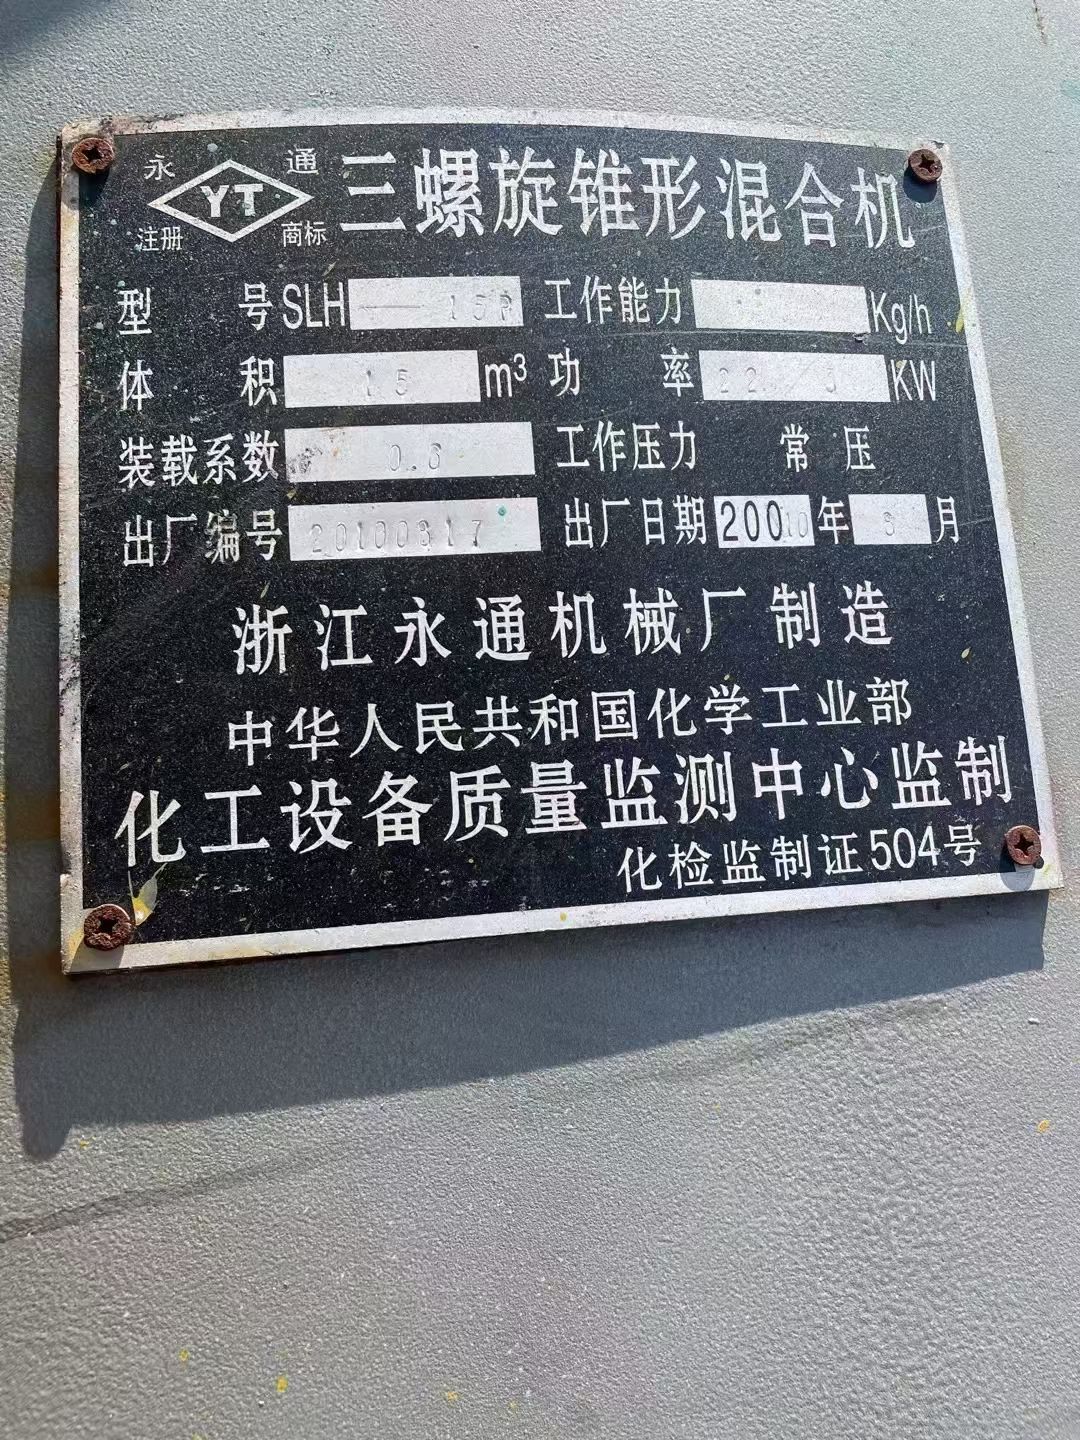 永 通
YT
注册 商标
三螺旋锥形混合机
型 号 SLH — 15R 工作能力 Kg/h
体 积 15 m³ 功 率 22 3 KW
装载系数 0.6 工作压力 常 压
出厂编号 20100817 出厂日期 20010 年 8 月
浙江永通机械厂制造
中华人民共和国化学工业部
化工设备质量监测中心监制
化检监制证504号